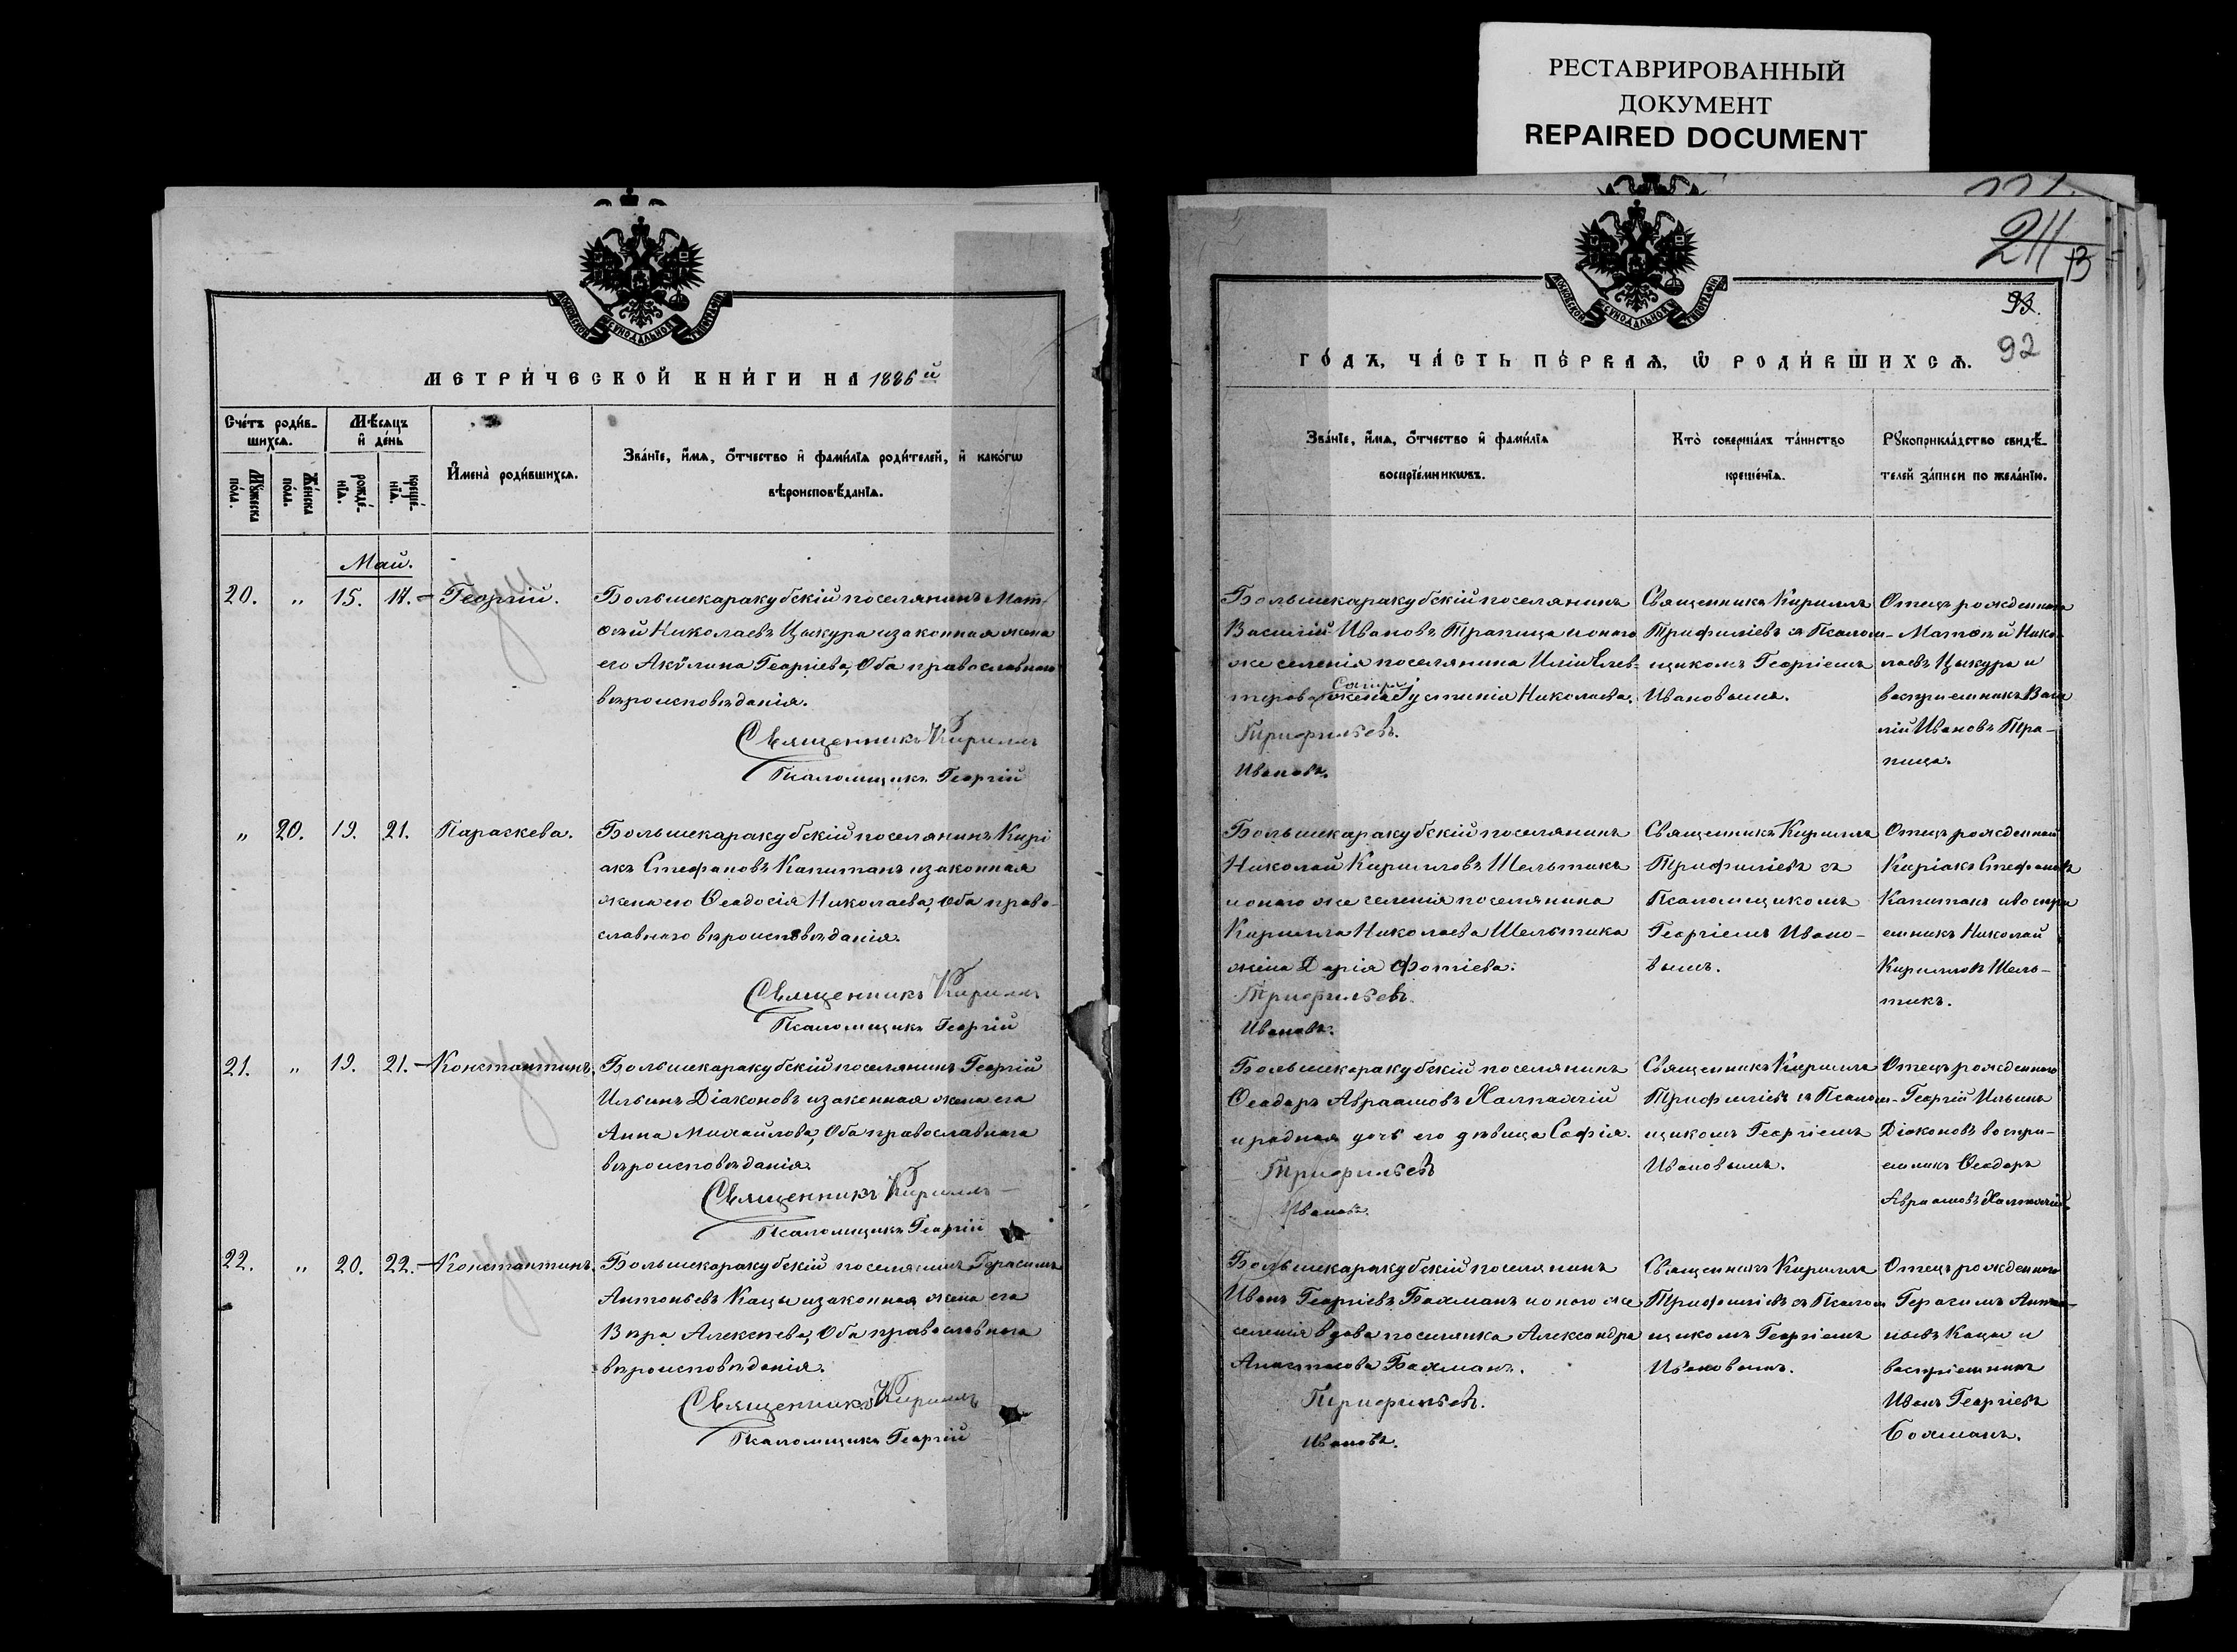 РЕСТАВРИРОВАННЫЙ
ДОКУМЕНТ
REPAIRED DOCUMENT
МОСКОВСКОЙ СѴНОДАЛЬНОЙ ТѴПОГРАФІИ
МЕТРИ́ЧЕСКОЙ КНИ́ГИ НА 1886й
Сче́тъ роди́в-
шихся.
Мѣ́сяцъ
и҆ де́нь
И҆мена̀ роди́вшихся.
Зва́нїе, и҆́мя, о҆́тчество и҆ фами́лїя роди́телей, и҆ како́гѡ
вѣроисповѣ́данїя.
Мꙋ́жеска по́ла.
Же́нска по́ла.
рожде́-нїя.
креще́-нїя.
Май.
20. " 15. 17. Георгій.
Большекаракубскій поселянинъ Мат-
ѳѣй Николаевъ Цыкура и законная жена
его Акѵлина Георгіева, Оба православнаго
вѣроисповѣданія.
Священникъ Кириллъ
Псаломщикъ Георгій
" 20. 19. 21. Параскева.
Большекаракубскій поселянинъ Кирі
акъ Стефановъ Капитанъ и законная
жена его Ѳеодосія Николаева, Оба право-
славнаго вѣроисповѣданія.
Священникъ Кириллъ
Псаломщикъ Георгій
21. " 19. 21. Константинъ.
Большекаракубскій поселянинъ Георгій
Ильинъ Діаконовъ и законная жена его
Анна Михайлова, Оба православнаго
вѣроисповѣданія.
Священникъ Кириллъ
Псаломщикъ Георгій
22. " 20. 22. Константинъ.
Большекаракубскій поселянинъ Герасимъ
Антоньевъ Кацы и законная жена его
Вѣра Алексѣева, Оба православнаго
вѣроисповѣданія.
Священникъ Кириллъ
Псаломщикъ Георгій
93.
92
МОСКОВСКОЙ СѴНОДАЛЬНОЙ ТѴПОГРАФІИ
ГО́ДЪ, ЧА́СТЬ ПЕ́РВАЯ, Ѡ҆ РОДИ́ВШИХСЯ.
Зва́нїе, и҆́мя, о҆́тчество и҆ фами́лїя
воспрїе́мникѡвъ.
Кто̀ соверша́лъ та́инство
креще́нїя.
Рꙋкоприкла́дство свидѣ́-
телей за́писи по жела́нїю.
Большекаракубскій поселянинъ
Василій Ивановъ Трапица и оного
же селенія поселянина Иліи Елев-
терова сестра жена Іустинія Николаева.
Трифильевъ.
Ивановъ.
Священникъ Кириллъ
Трифиліевъ съ Псалом-
щикомъ Георгіемъ
Ивановымъ.
Отецъ рожденнаго
Матѳѣй Нико-
лаевъ Цыкура и
воспріемникъ Васи
лій Ивановъ Тра-
пица.
Большекаракубскій поселянинъ
Николай Кирилловъ Шельтикъ
и оного же селенія поселянина
Кирилла Николаева Шельтика
жена Дарія Фотіева.
Трифильевъ.
Ивановъ.
Священникъ Кириллъ
Трифиліевъ съ
Псаломщикомъ
Георгіемъ Ивано-
вымъ.
Отецъ рожденной
Киріакъ Стефановъ
Капитанъ и воспрі
емникъ Николай
Кирилловъ Шель-
тикъ.
Большекаракубскій поселянинъ
Ѳеодоръ Авраамовъ Халпахчій
и родная дочь его дѣвица Софія.
Трифильевъ
Ивановъ.
Священникъ Кириллъ
Трифиліевъ съ Псалом-
щикомъ Георгіемъ
Ивановымъ.
Отецъ рожденнаго
Георгій Ильинъ
Діаконовъ воспрі-
емникъ Ѳеодоръ
Авраамовъ Халпахчій.
Большекаракубскій поселянинъ
Иванъ Георгіевъ Бахманъ и оного же
селенія вдова поселянка Александра
Анастасова Бахманъ.
Трифильевъ.
Ивановъ.
Священникъ Кириллъ
Трифиліевъ съ Псалом
щикомъ Георгіемъ
Ивановымъ.
Отецъ рожденнаго
Герасимъ Анто-
ньевъ Кацы и
воспріемникъ
Иванъ Георгіевъ
Бахманъ.